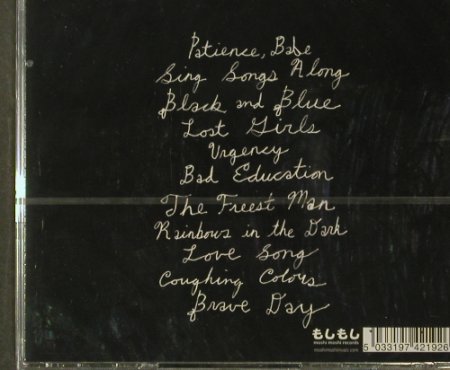 Patience, Babe
Sing Songs Along
Black and Blue
Lost Girls
Urgency
Bad Education
The Freest Man
Rainbows in the Dark
Love Song
Coughing Colours
Brave Day
もしもし
moshi moshi records
moshimoshimusic.com
5 033197 421926